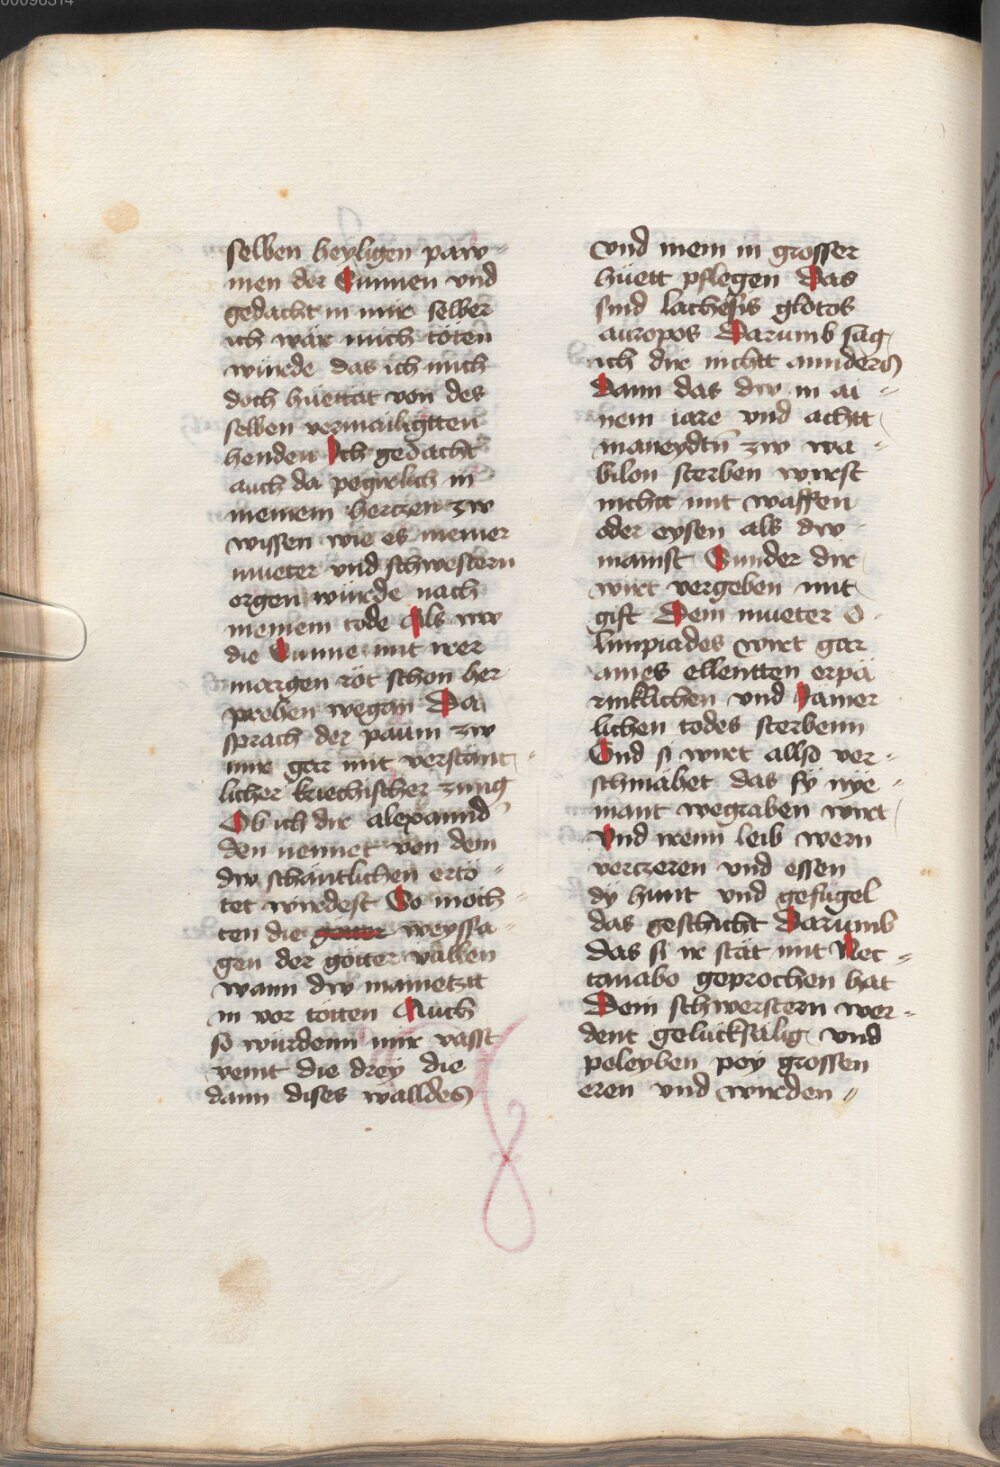 00096314
selben heyligen paw-
men der Sunnen vnd
gedacht in mir selber
ich wär mich töten
würde das ich mich
doch huettät von des
selben vermailigtten
henden Ich gedacht
auch da pegirlich in
meinem herczen zw
wissen wie es meiner
mueter vnd schwestern
ergen würde nach
meinem tode Als nw
die Sunne mit irer
margen röt schon her
prehen wegan Da
sprach der paüm zw
mir gar mit verstänt-
licher kriechischer züng
Ob ich dir alexannd'
den nennet von dem
dw schantlichen ertö-
tet wirdest So möch-
ten die götter weyssa-
gen der götter vällen
wann dw mainetzst
in vor tötten Auch
so würdenn mir vasst
veint die drey die
dann dises walldes
vnd mein in grosser
huett pflegen Das
sind lachesis glotos
auropos Darumb sag
ich dir nichtt annders
Dann das dw in ai-
nem iare vnd achtt
maneydtn zw wa-
bilon sterben wirst
nichtt mit waffen
oder eysen als dw
mainst Sunder dir
wirt vergeben mit
gift Dein mueter O-
limpiades wirt gar
aines ellentten erpä
rmklichen vnd Jamer
lichen todes sterbenn
Vnd si wirt allso ver-
schmähet das sy nye-
mant wegraben wirt
Vnd irenn leib wern
verczeren vnd essen
dy hunt vnd gefugel
das geschicht Darumb
das si ir stät mit Nec-
tanabo geprochen hat
Dein schwerstern wer-
dent gelücksälig vnd
peleyben pey grossen
eren vnd wirden